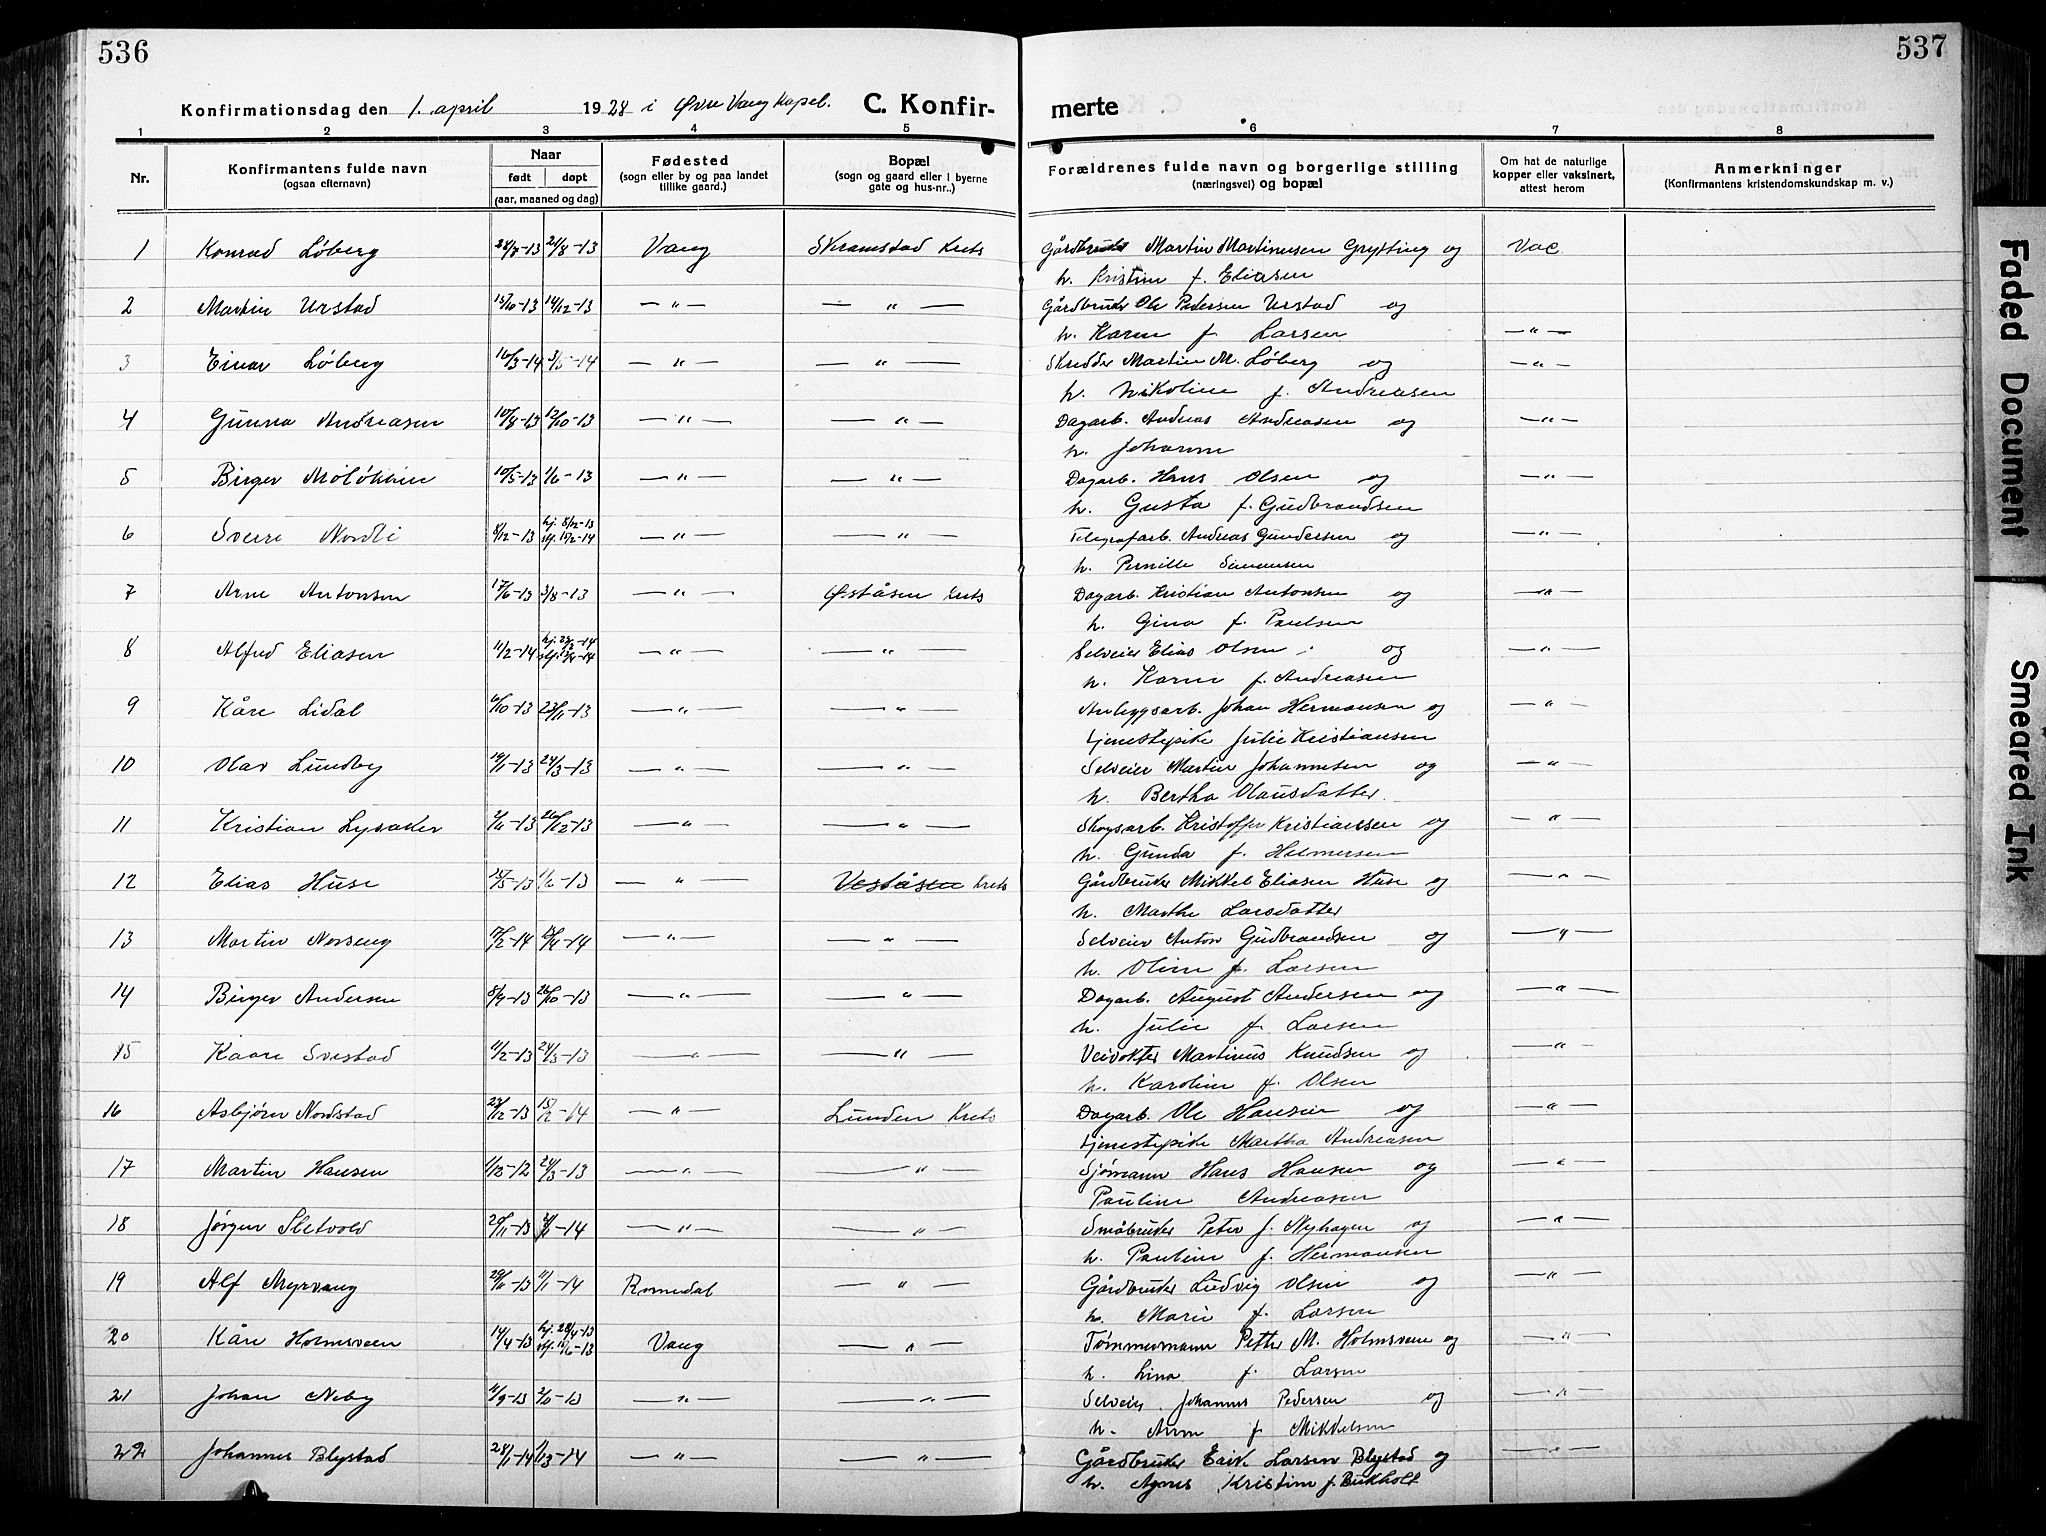 536
537
Konfirmationsdag den 1. april 1928 i Øvre Vang Kapel. C. Konfir-
merte
1 2 3 4 5 6 7 8
Nr. Konfirmantens fulde navn (ogsaa efternavn) Naar født døpt (aar, maaned og dag) Fødested (sogn eller by og paa landet tillike gaard.) Bopæl (sogn og gaard eller i byerne gate og hus-nr..) Forældrenes fulde navn og borgerlige stilling (næringsvei) og bopæl Om hat de naturlige kopper eller vaksinert, attest herom Anmerkninger (Konfirmantens kristendomskundskap m. v.)
1 Konrad Løberg -13 -13 Vang Skramstad Krets Gårdbruker Martin Martinusen Grytting og Vac.
h. Kristine f. Eliasen
2 Martin Urstad 15/10-13 14/12-13 —"— —"— Gårdbruker Ole Pedersen Urstad og
h. Karen f. Larsen —"—
3 Einar Løberg 16/3-14 3/5-14 —"— —"— Skredder Martin M. Løberg og —"—
h. Nikoline f. Andreasen
4 Gunna Andreasen 10/8-13 12/10-13 —"— —"— Dagarb. Andreas Andreasen og —"—
h. Johanne
5 Birger Moløkken 10/5-13 1/6-13 —"— —"— Dagarb. Hans Olsen og —"—
h. Gusta f. Gudbrandsen
6 Sverre Nordli 8/12-13 hj. 8/12-13 15/2-14 —"— —"— Telegrafarb. Andreas Gundersen og —"—
h. Pernille Simensen
7 Arne Antonsen 17/6-13 3/8-13 —"— Øståsen Krets Dagarb. Kristian Antonsen og —"—
h. Gina f. Paulsen
8 Alfred Eliasen 11/2-14 hj. -14 -14 —"— —"— Selveier Elias Olsen og —"—
h. Karen f. Andreasen
9 Kåre Lidal 6/10-13 23/11-13 —"— —"— Anleggsarb. Johan Hermansen og —"—
tjenestepike Julie Kristiansen
10 Olav Lundby 19/1-13 24/3-13 —"— —"— Selveier Martin Johannesen og —"—
h. Bertha Olausdatter.
11 Kristian Lysaker -13 26/12-13 —"— —"— Skogsarb. Kristoffer Kristianssen og —"—
h. Gunda f. Helmersen
12 Elias Huse -13 -13 —"— Veståsen Krets Gårdbruker Mikkel Eliasen Huse og —"—
h. Marthe Larsdatter
13 Martin Norseng -14 -14 —"— —"— Selveier Anton Gudbrandsen og —"—
h. Oline f. Larsen
14 Birger Andersen 8/9-13 26/10-13 —"— —"— Dagarb. August Andersen og —"—
h. Julie f. Larsen
15 Kaare Svestad 11/2-13 24/3-13 —"— —"— Veivokter Martinus Knudsen og —"—
h. Karoline f. Olsen
16 Asbjørn Nordstad 23/12-13 15/2-14 —"— Lunden Krets Dagarb. Ole Hansen og —"—
tjenestepike Martha Andreasen
17 Martin Hansen -12 24/3-13 —"— —"— Sjømann Hans Hansen og —"—
Pauline Andreasen
18 Jørgen Sletvold -13 -14 —"— —"— Småbruker Peter J. Nyhagen og —"—
h. Pauline f. Hermansen
19 Alf Myrvang 29/11-13 11/1-14 Romedal —"— Gårdbruker Ludvig Olsen og —"—
h. Marie f. Larsen
20 Kåre Holmsveen 14/4-13 hj. 28/4-13 15/6-13 Vang —"— Tømmermann Petter M. Holmsveen og —"—
h. Lina f. Larsen
21 Johan Neby -13 -13 —"— —"— Selveier Johannes Pedersen og —"—
h. Anne f. Mikkelsen
22 Johannes Blystad 28/1-14 1/3-14 —"— —"— Gårdbruker Erik Larsen Blystad og —"—
h. Agnes Kristine f. Birkholt
Faded Document
Smeared Ink